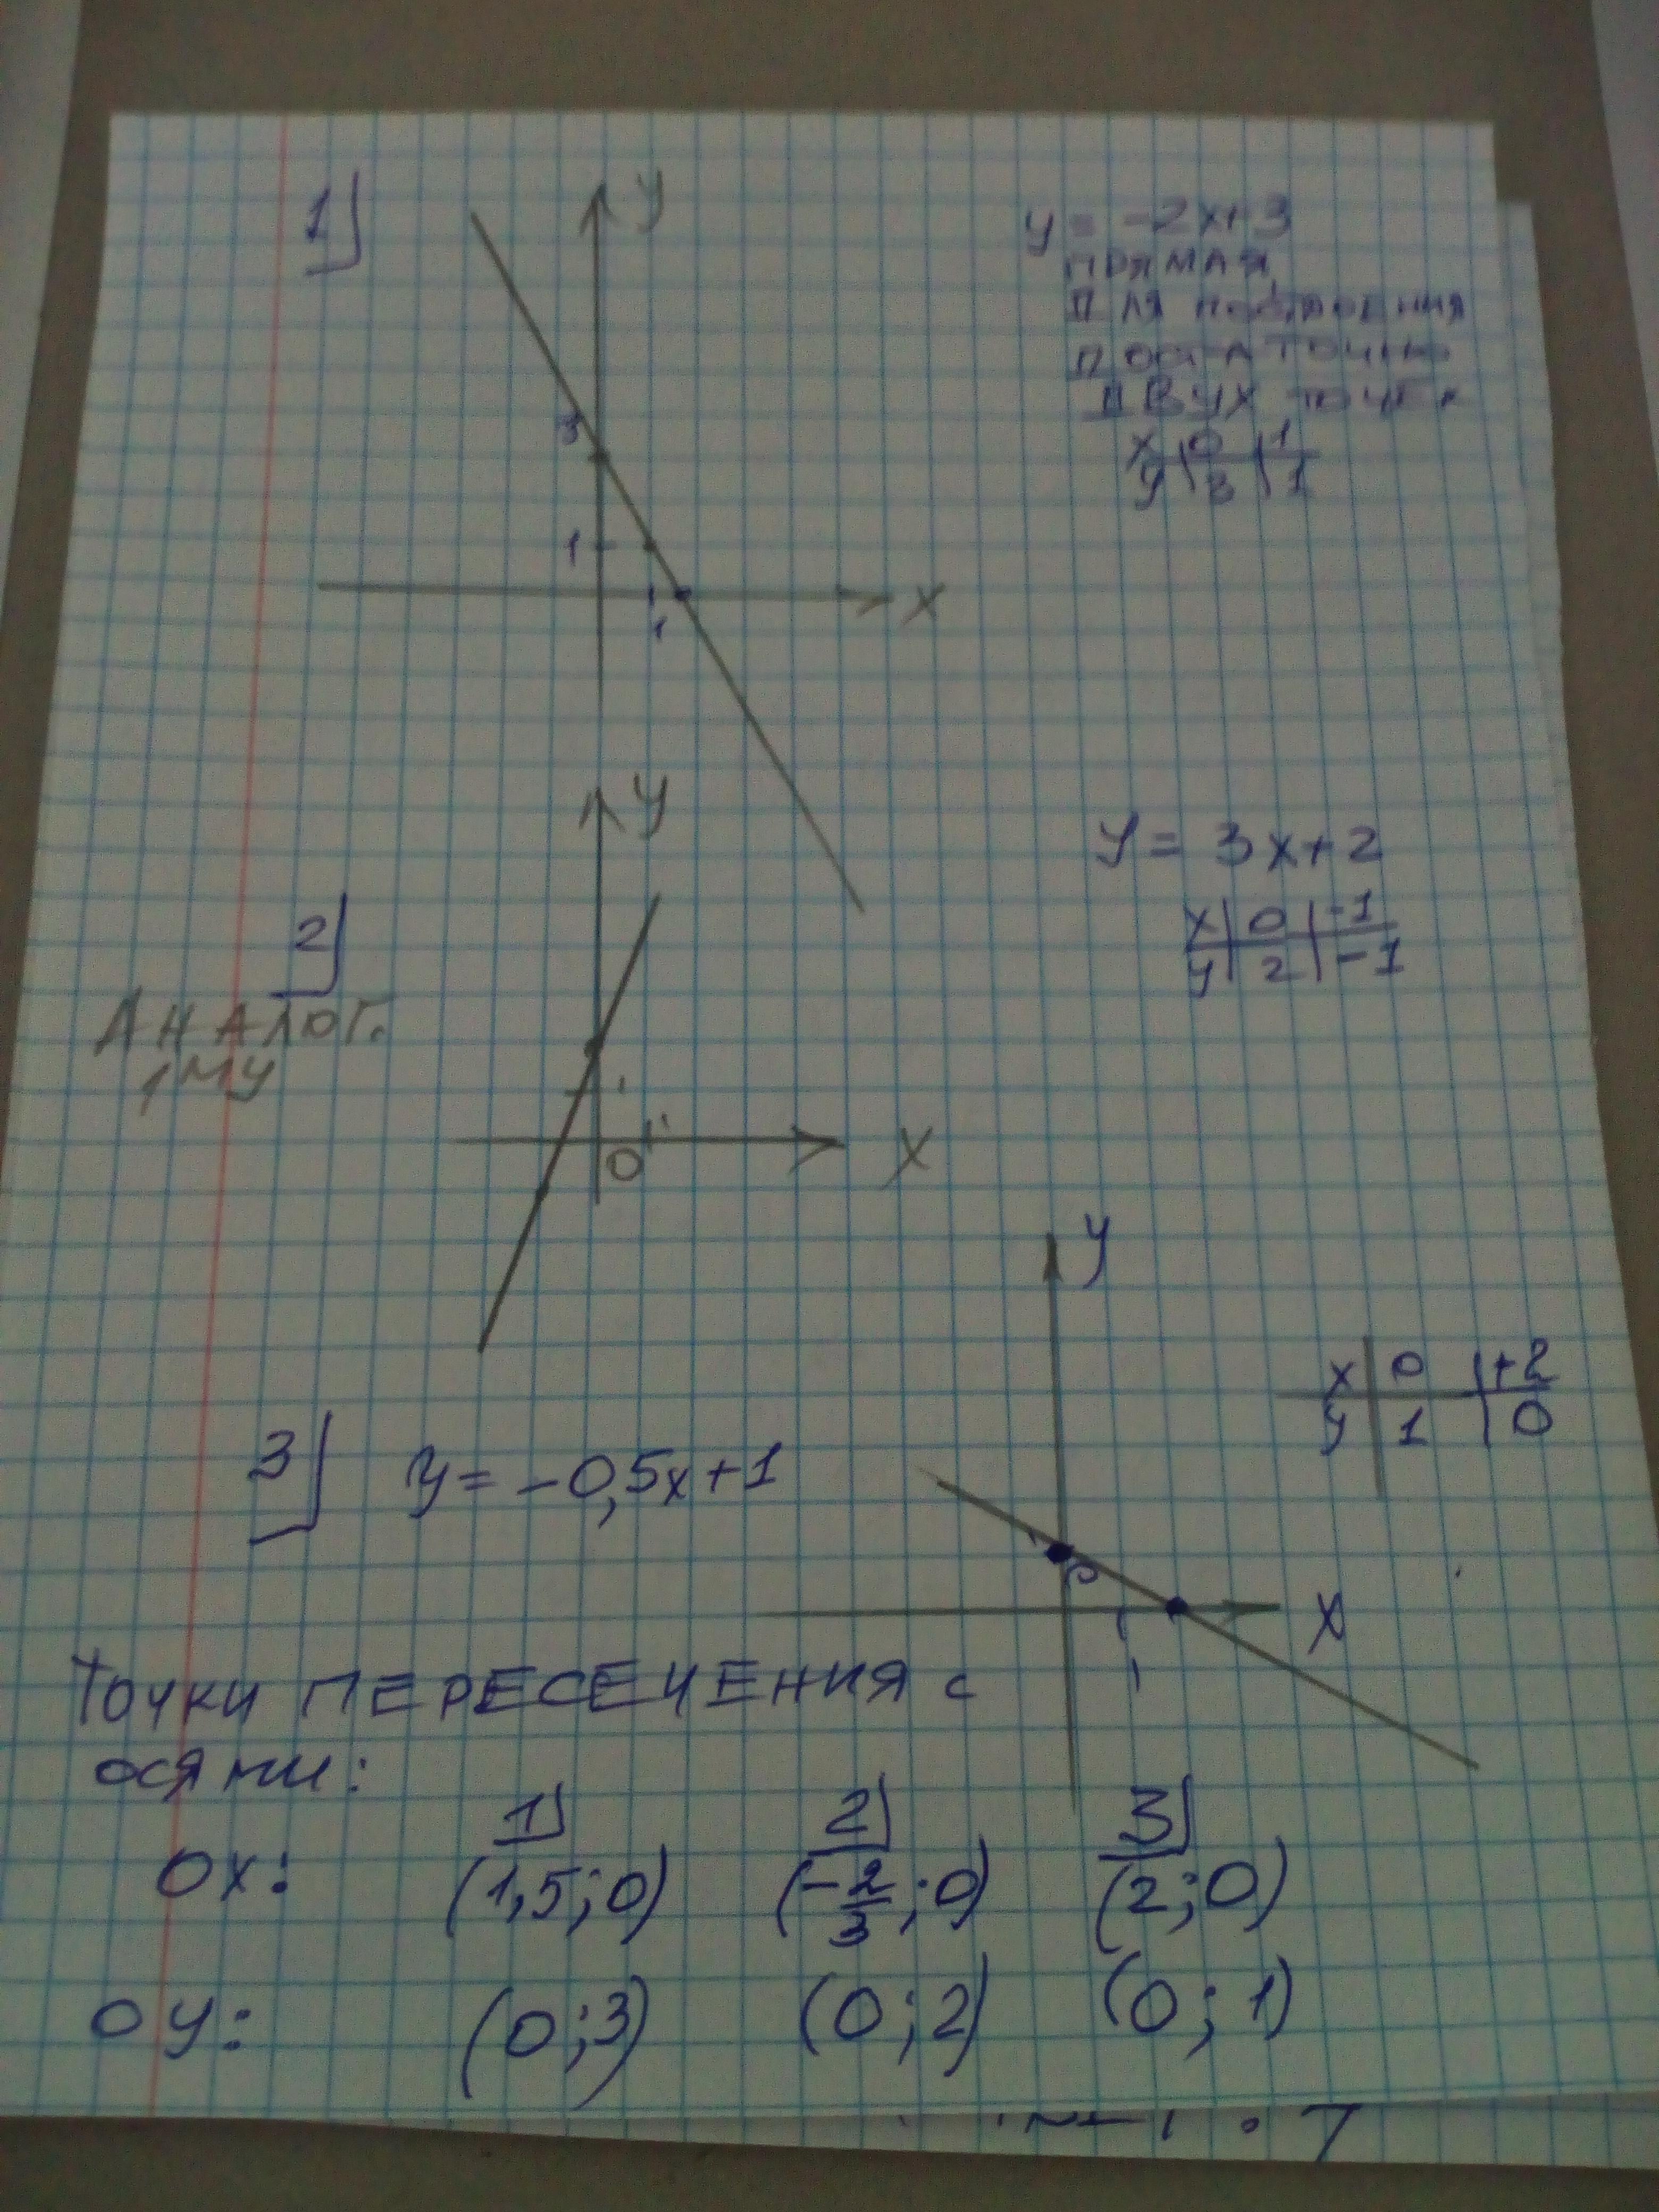 1)
y
y = -2x+3
прямая,
для построения
достаточно
двух точек
x | 0 | 1
y | 3 | 1
3
1
1
x
y
y = 3x+2
x | 0 | -1
y | 2 | -1
2)
Аналог.
1му
1
0 1
x
y
x | 0 | +2
y | 1 | 0
3) y = -0,5x+1
1
0
x
1
Точки пересечения с
осями:
1) 2) 3)
Ox: (1,5;0) (-2/3;0) (2;0)
Oy: (0;3) (0;2) (0;1)